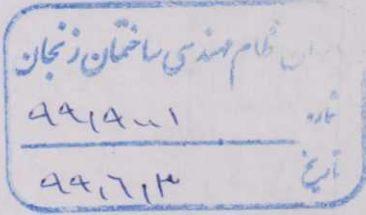 نظام مهندسی ساختمان زنجان
شماره ۹۹,۹۰۰۱
تاریخ ۹۹,۶,۳